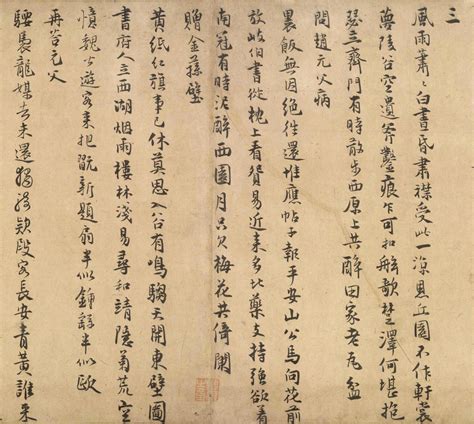 三
風雨蕭々白晝昏肅襟受此一涼恩丘園不作軒裳
夢陵谷空遺斧鑿痕乍可扣舷歌楚澤何堪抱
瑟立齊門有時散步西原上共醉田家老瓦盆
問趙元父病
裹飯無因絕往還惟應帖子報平安山公馬向花前
放岐伯書從枕上看貿易近來多比藥支持強欲看
南冠有時泥醉西園月只欠梅花共倚闌
贈金蓀璧
黃紙紅旗事已休莫思入谷有鳴騶天開東壁圖
書府人立西湖烟雨樓林淺易尋和靖隱菊荒空
憶魏公遊客來把翫新題扇半似鍾繇半似歐
再答元父
騕褭龍媒去未還獨騎款段客長安青黃誰采